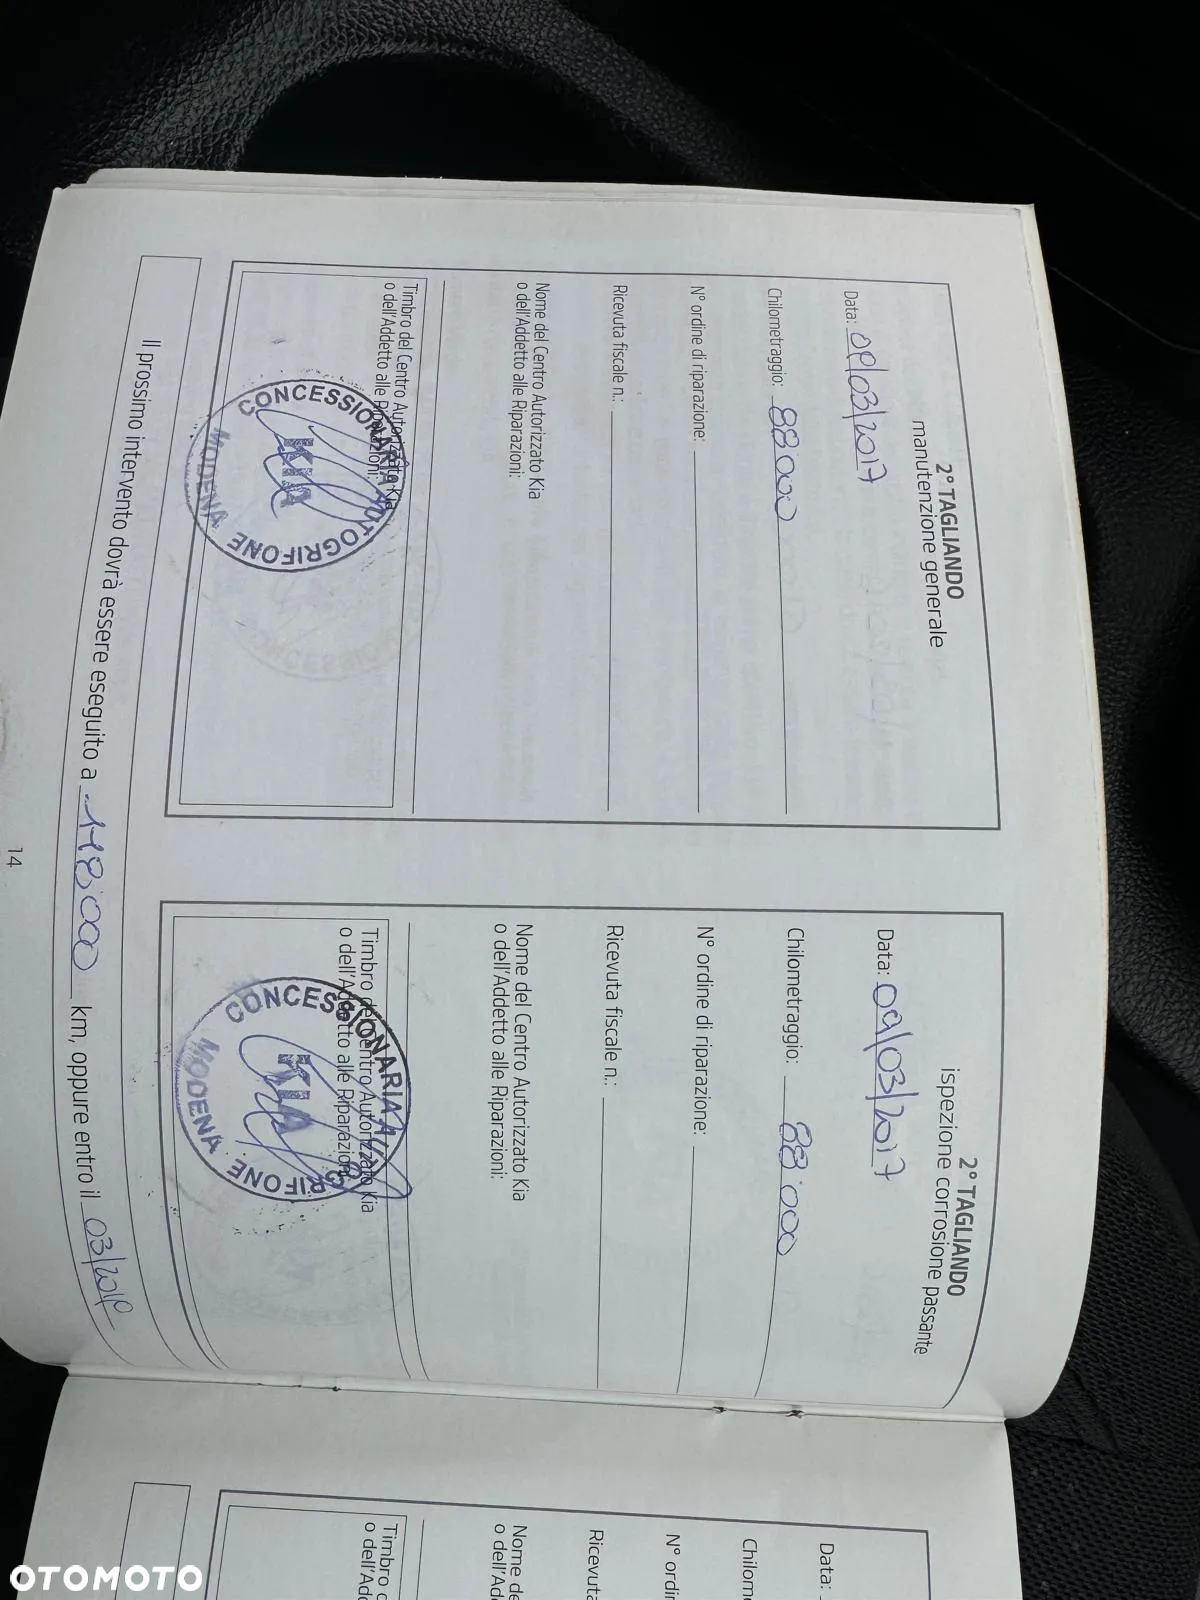 2° TAGLIANDO
manutenzione generale
Data: 09/03/2017
Chilometraggio: 88000
N° ordine di riparazione:
Ricevuta fiscale n.:
Nome del Centro Autorizzato Kia
o dell'Addetto alle Riparazioni:
Timbro del Centro Autorizzato Kia
o dell'Addetto alle Riparazioni:
CONCESSIONARIA AUTOGRIFONE
KIA
MODENA
2° TAGLIANDO
ispezione corrosione passante
Data: 09/03/2017
Chilometraggio: 88.000
N° ordine di riparazione:
Ricevuta fiscale n.:
Nome del Centro Autorizzato Kia
o dell'Addetto alle Riparazioni:
Timbro del Centro Autorizzato Kia
o dell'Addetto alle Riparazioni:
CONCESSIONARIA AUTOGRIFONE
KIA
MODENA
Il prossimo intervento dovrà essere eseguito a 118.000 km, oppure entro il 03/2019
14
Data:
Chilom
N° ordin
Ricevuta
Nome de
o dell'Ad
Timbro d
o dell'Ad
OTOMOTO